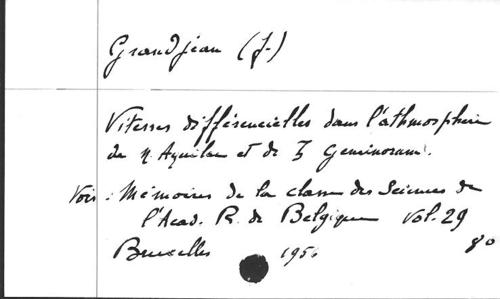 Grandjean (J.)
Vitesses différencielles dans l'athmosphère
de η Aquilae et de ζ Geminorum.
Voir : Mémoires de la classe des Sciences de
l'Acad. R. de Belgique Vol. 29
Bruxelles 8°